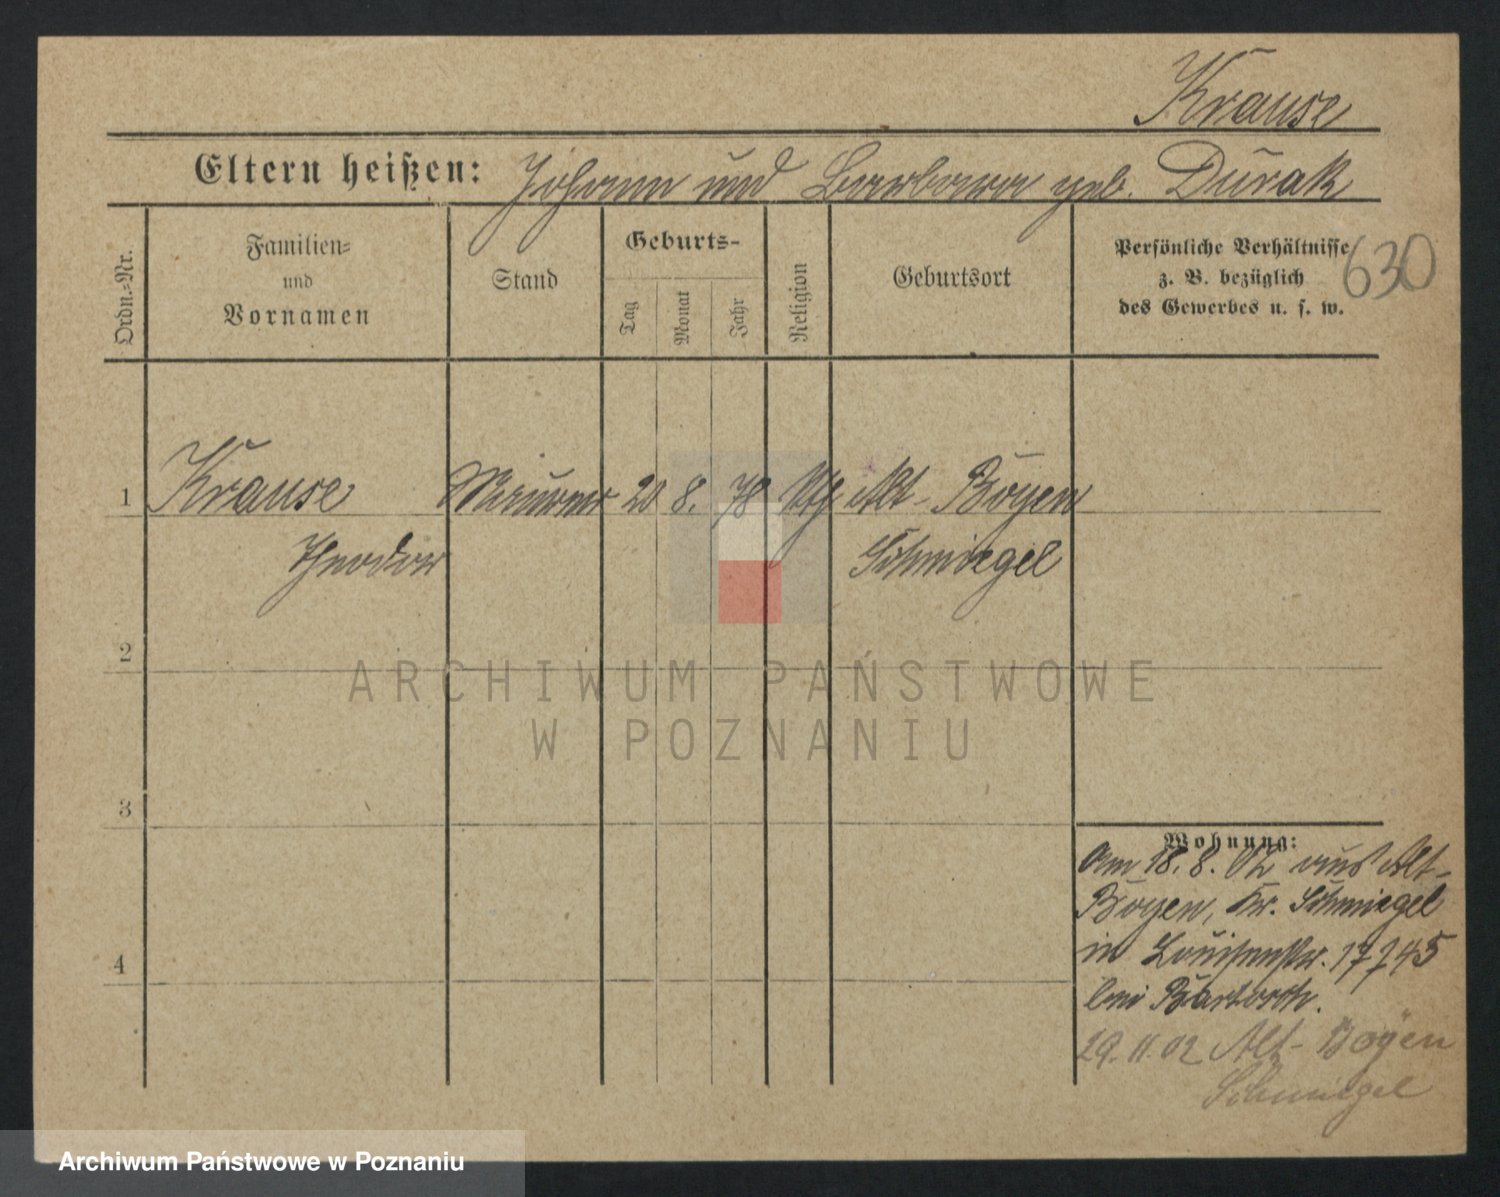 Krause
Eltern heißen: Johann und Barbara geb. Durak
Ordn.-Nr.
Familien-
und
Vornamen
Stand
Geburts-
Tag
Monat
Jahr
Religion
Geburtsort
Persönliche Verhältnisse
z. B. bezüglich
des Gewerbes u. s. w.
630
1 Krause Maurer 20 8. 78 Alt-Boyen
Theodor Schmiegel
2
ARCHIWUM PAŃSTWOWE
W POZNANIU
3
4
Wohnung:
Am 18. 8. 02 aus Alt-
Boyen, Kr. Schmiegel
in Louisenstr. 17
bei
29. 11. 02 Alt-Boyen
Schmiegel
Archiwum Państwowe w Poznaniu